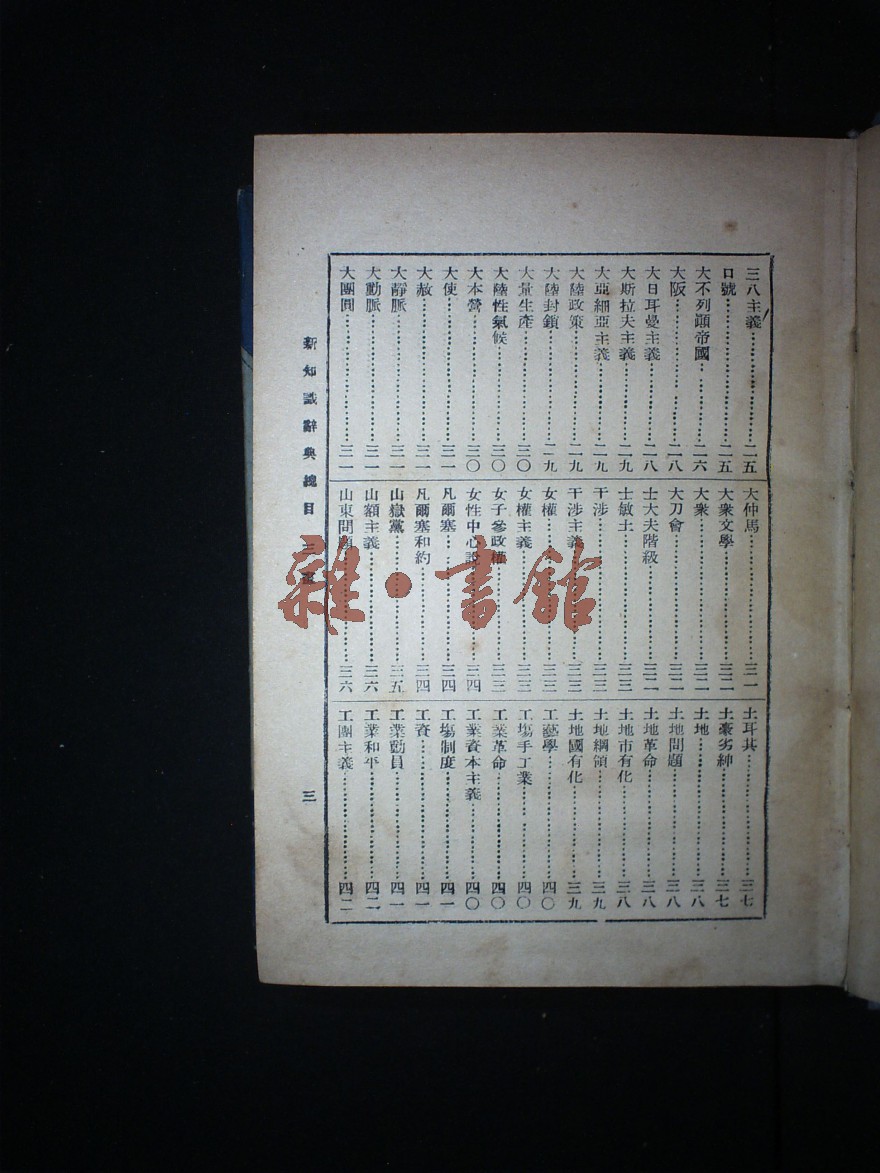 三八主義……二五
口號……二五
大不列顛帝國……二六
大阪……二八
大日耳曼主義……二八
大斯拉夫主義……二九
大亞細亞主義……二九
大陸政策……二九
大陸封鎖……二九
大量生產……三〇
大陸性氣候……三〇
大本營……三〇
大使……三一
大赦……三一
大靜脈……三一
大動脈……三一
大團圓……三一
大仲馬……三一
大衆文學……三二
大衆……三二
大刀會……三二
士大夫階級……三二
士敏土……三三
干涉……三三
干涉主義……三三
女權……三三
女權主義……三三
女子參政權……三三
女性中心說……三四
凡爾塞……三四
凡爾塞和約……三四
山嶽黨……三五
山額主義……三六
山東問題……三六
土耳其……三七
土豪劣紳……三七
土地……三八
土地問題……三八
土地革命……三八
土地市有化……三八
土地綱領……三九
土地國有化……三九
工藝學……四〇
工場手工業……四〇
工業革命……四〇
工業資本主義……四〇
工場制度……四一
工資……四一
工業動員……四一
工業和平……四二
工團主義……四二
新知識辭典總目 三畫
三
雜·書館